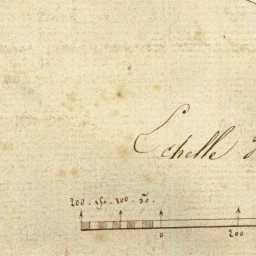 Echelle
200 . 150 . 100 . 50 .
0 200